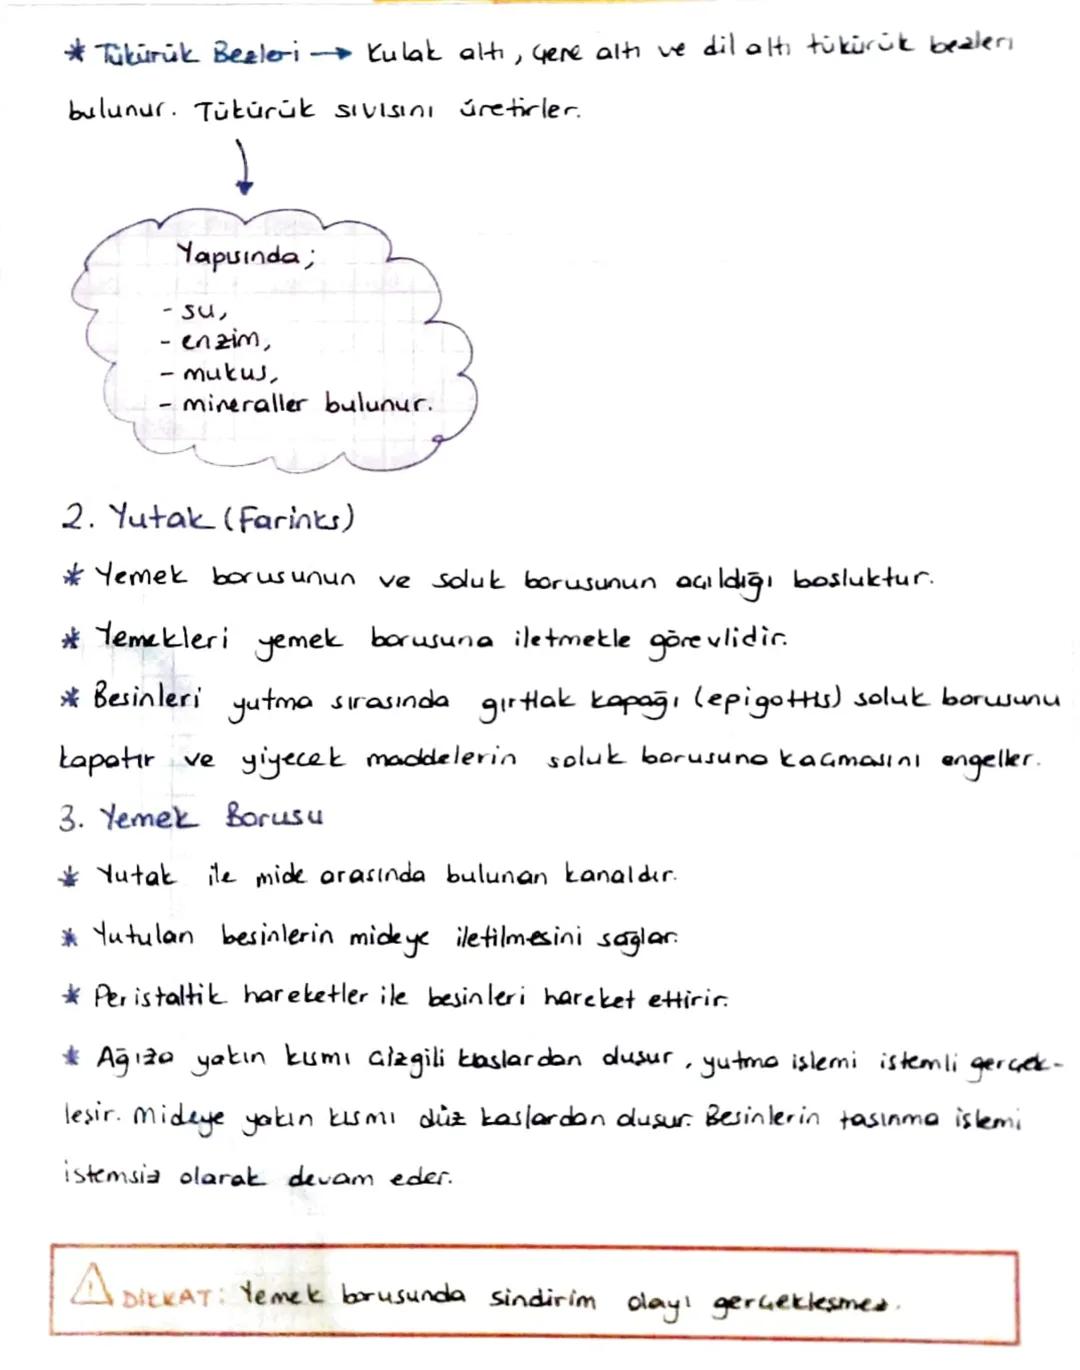 * Tükürük Bezleri → Kulak altı, çene altı ve dil altı tükürük bezleri
bulunur. Tükürük sıvısını üretirler.
Yapısında;
- su,
- enzim,
- mukus,
- mineraller bulunur.
2. Yutak (Farinks)
* Yemek borusunun ve soluk borusunun açıldığı boşluktur.
* Yemekleri yemek borusuna iletmekle görevlidir.
* Besinleri yutma sırasında gırtlak kapağı (epigottis) soluk borusunu
kapatır ve yiyecek maddelerin soluk borusuna kaçmasını engeller.
3. Yemek Borusu
* Yutak ile mide arasında bulunan kanaldır.
* Yutulan besinlerin mideye iletilmesini sağlar.
* Peristaltik hareketler ile besinleri hareket ettirir.
* Ağıza yakın kısmı çizgili kaslardan oluşur, yutma işlemi istemli gerçek-
leşir. Mideye yakın kısmı düz kaslardan oluşur. Besinlerin taşınma işlemi
istemsiz olarak devam eder.
! DİKKAT: Yemek borusunda sindirim olayı gerçekleşmez.